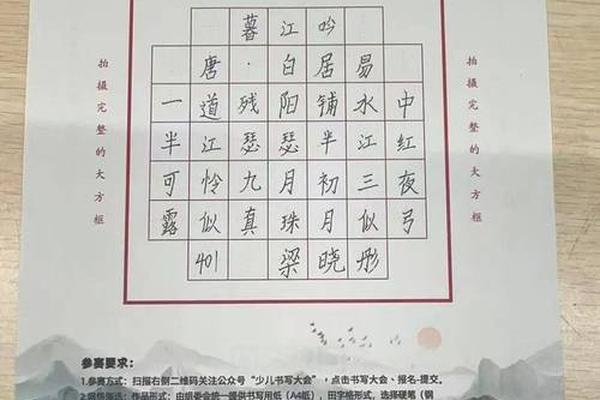 暮江吟
唐·白居易
一道残阳铺水中
半江瑟瑟半江红
可怜九月初三夜
露似真珠月似弓
401 梁晓彤
拍摄完整的大方框
拍摄完整的大方框
参赛要求：
1.参赛方式：扫描右侧二维码关注公众号“少儿书写大会”，点击书写大会、报名-提交。
作品形式：由组委会统一提供书写用纸（A4纸），田字格形式，选择硬笔（钢